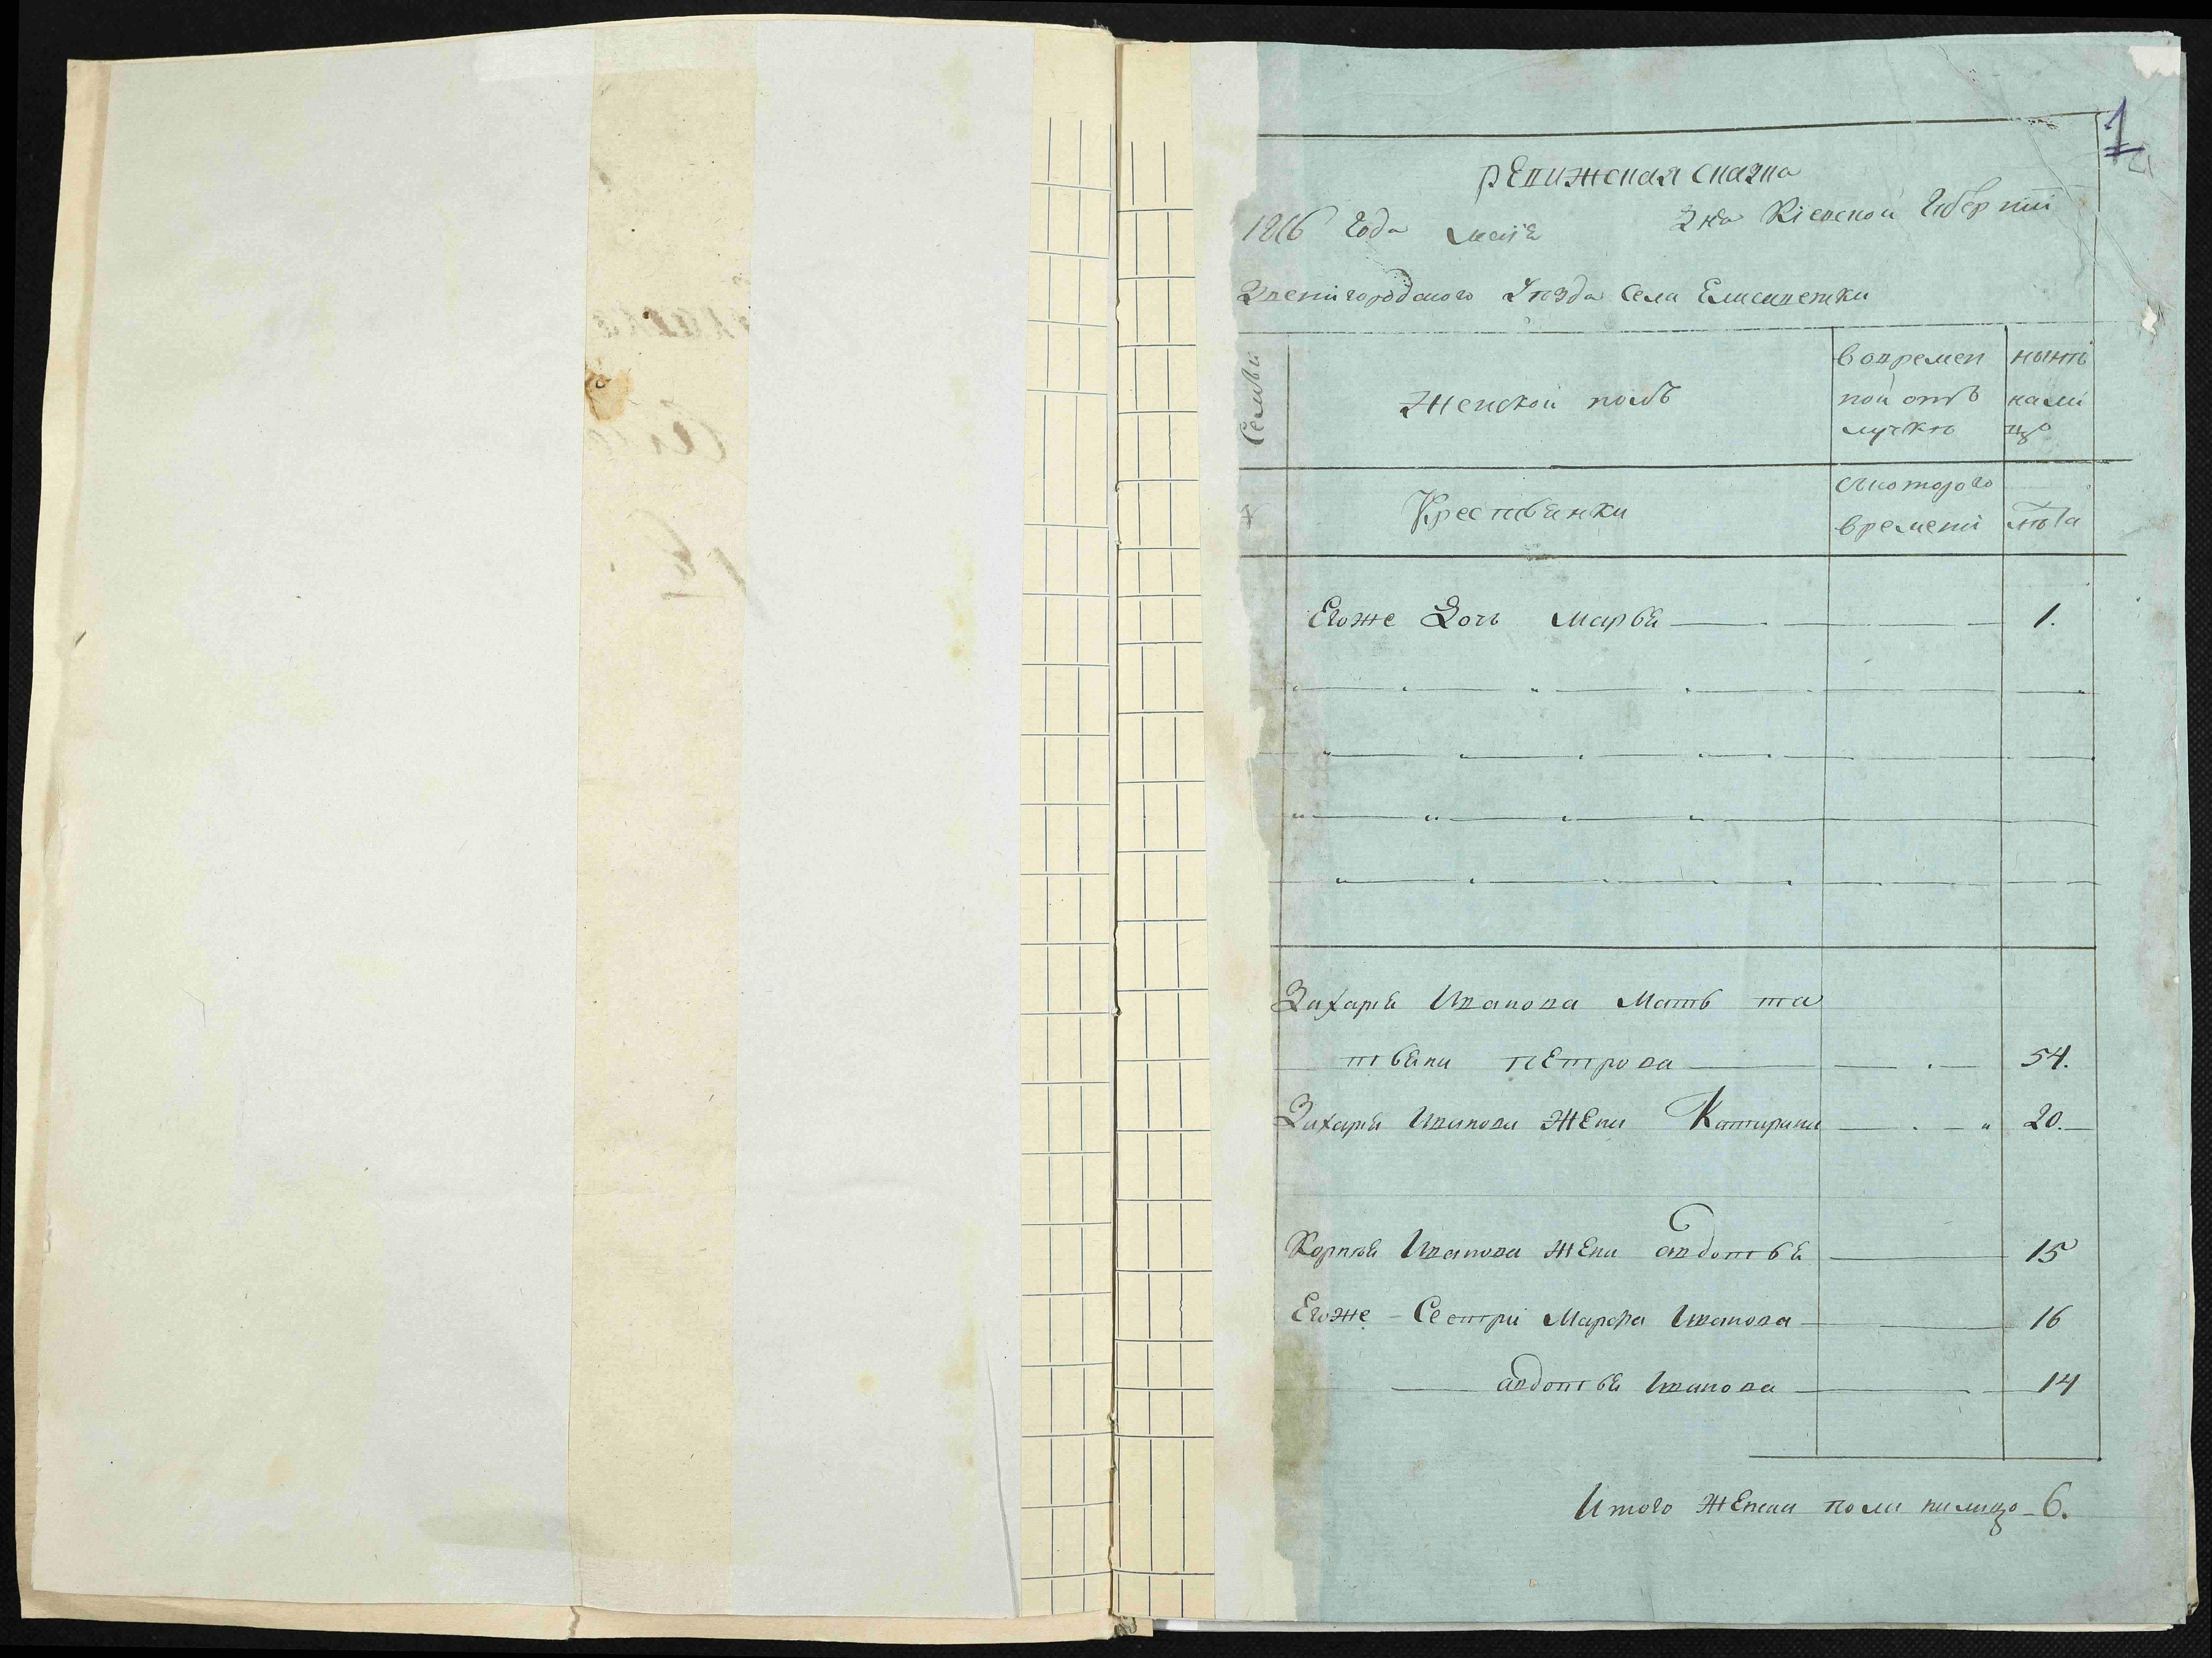 1
Ревижская сказка
1816 года маія дня Кіевской Губерніи
Звенигородского Уезда Села Елисаветки
Семьи
Женской полъ
вовремен
ной отъ
лучкѣ
нынѣ
нали
цо
Крестьянки
скоторого
времени
лѣта
Егоже Дочь Марья 1.
Захаря Иванова Мать та
тьяна Петрова 54.
Захаря Иванова жена Катирина 20.
Корнѣя Иванова жена авдотья 15
Егоже Сестри Марфа Иванова 16
авдотья Иванова 14
Итого женска пола налицо 6.